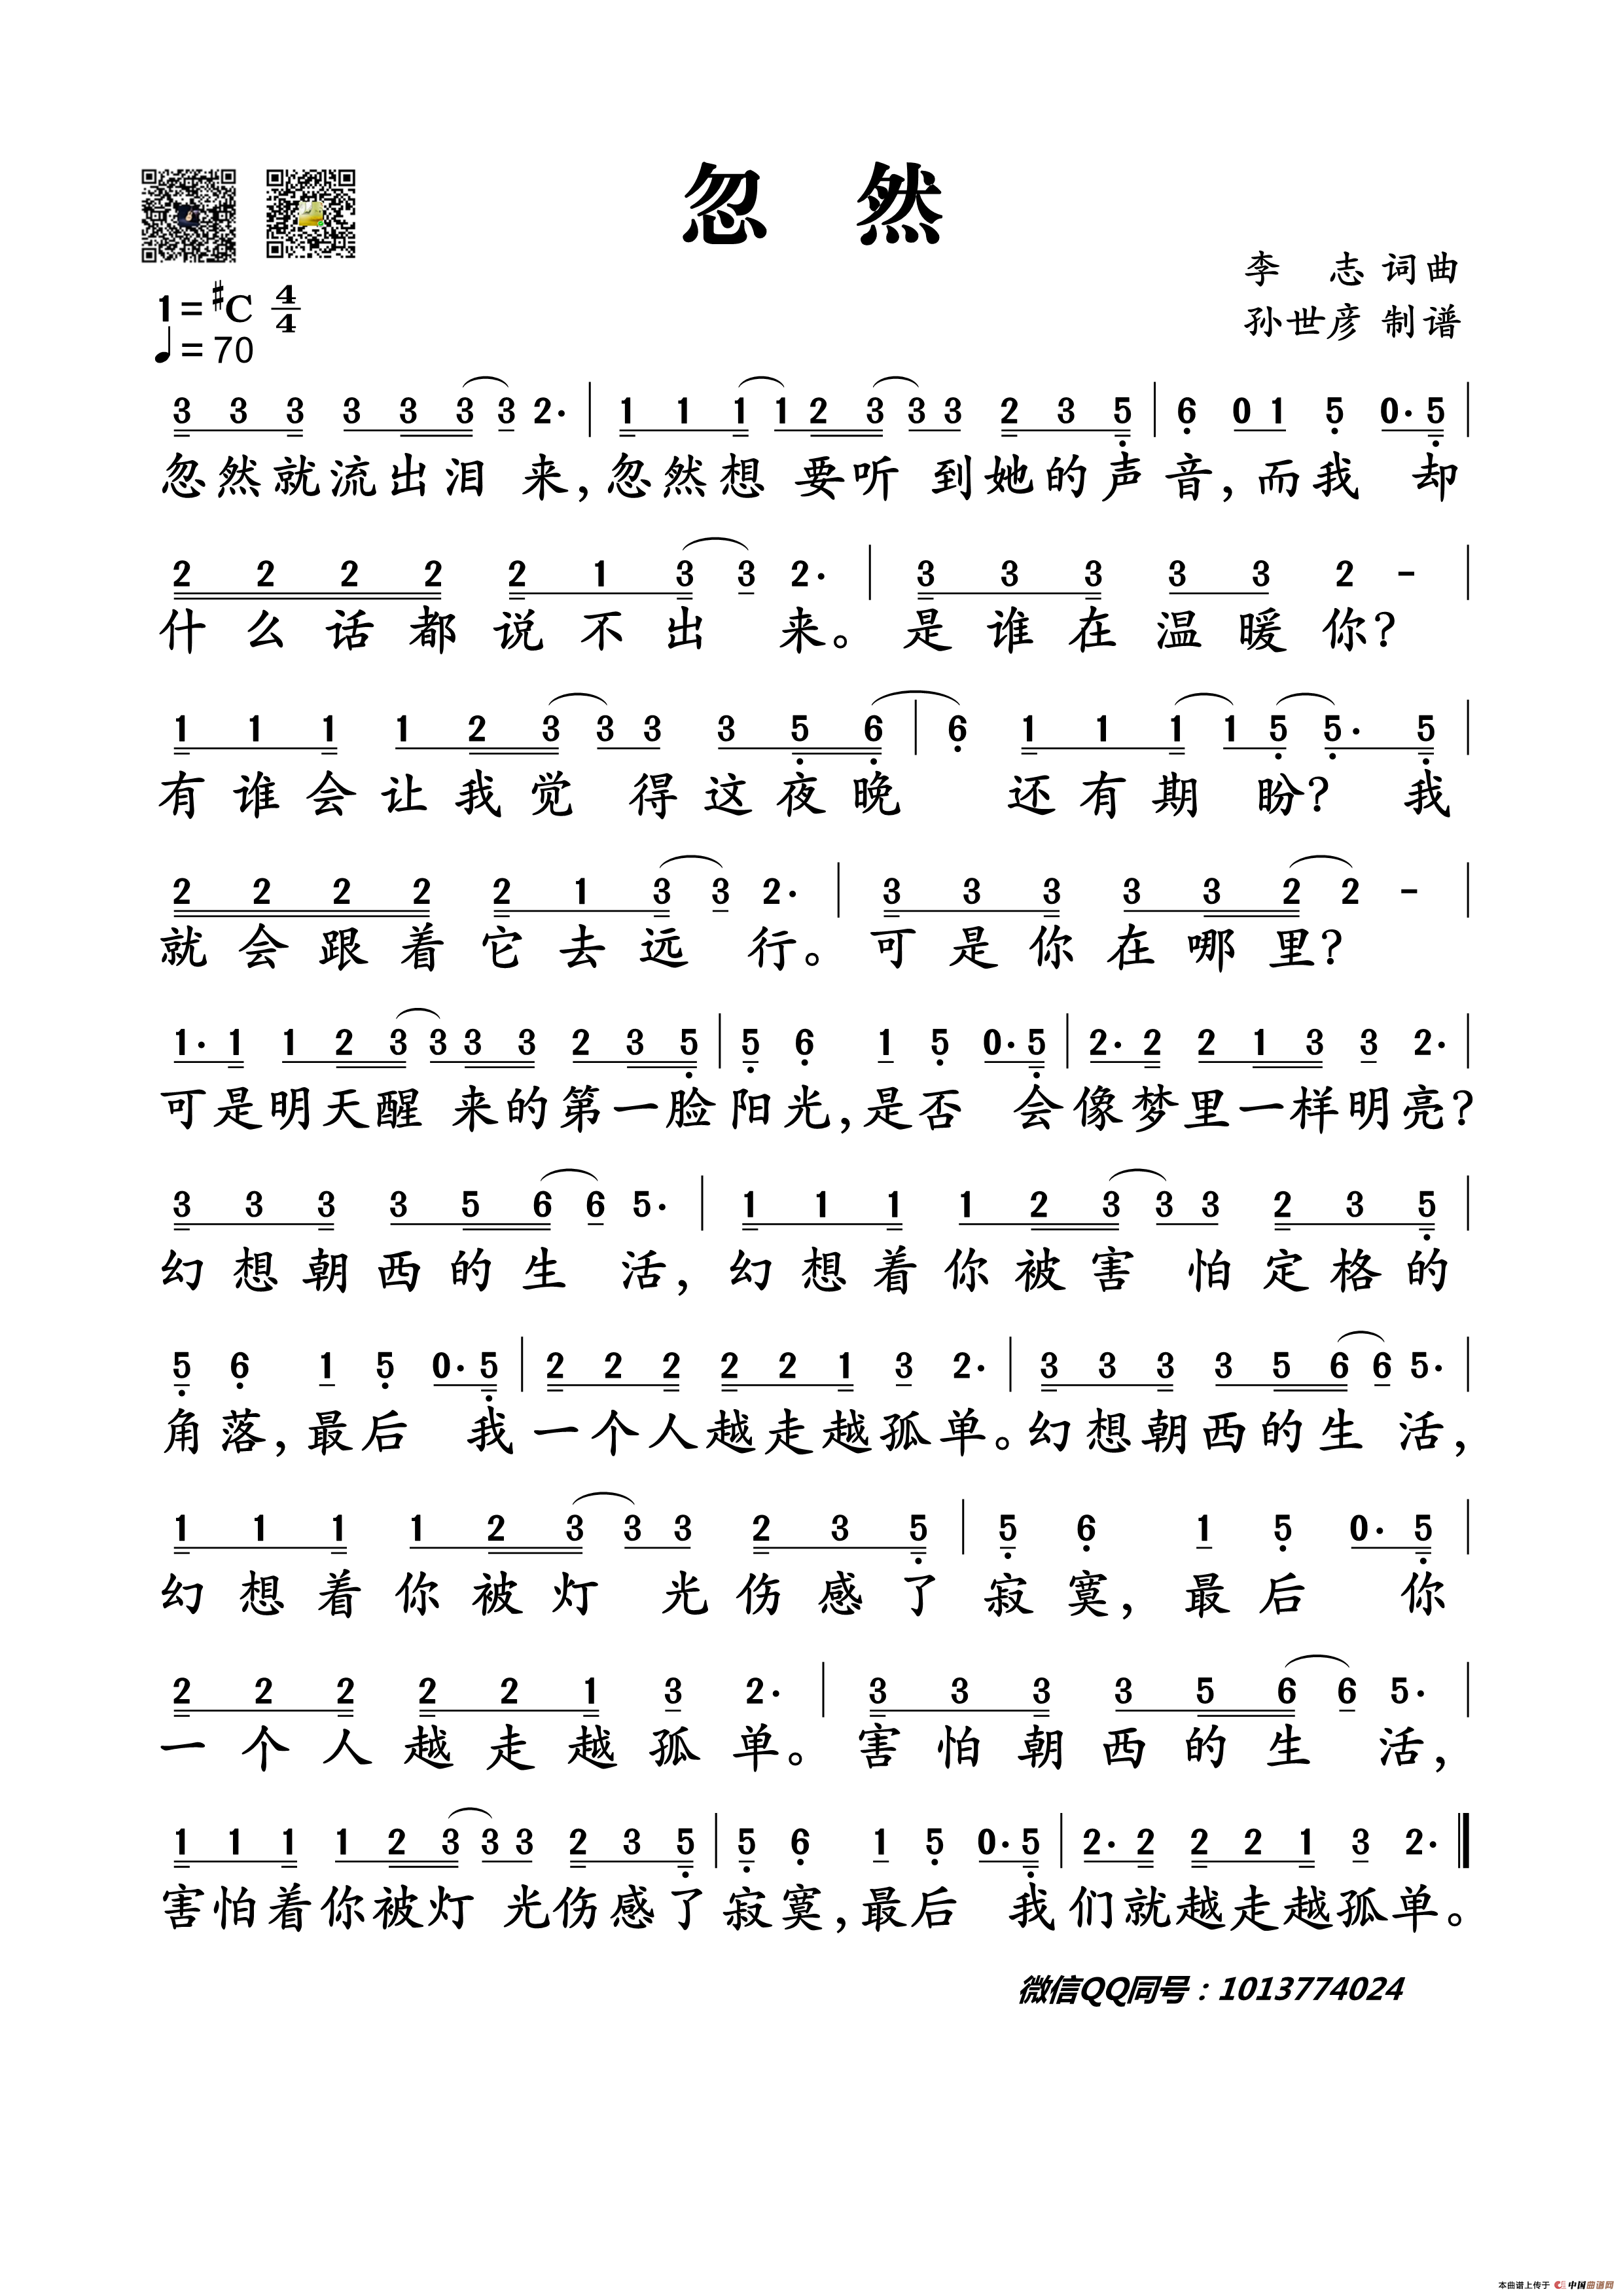 忽 然
李 志 词曲
1=♯C 4/4
孙世彦 制谱
♩=70
3 3 3 3 3 3 3 2· | 1 1 1 1 2 3 3 3 2 3 5 | 6 0 1 5 0· 5 |
忽然就流出泪 来,忽然想 要听 到她的声音,而我 却
2 2 2 2 2 1 3 3 2· | 3 3 3 3 3 2 - |
什么话都说不出 来。是谁在温暖你?
1 1 1 1 2 3 3 3 3 5 6 | 6 1 1 1 1 5 5· 5 |
有谁会让我觉 得这夜晚 还有期 盼? 我
2 2 2 2 2 1 3 3 2· | 3 3 3 3 3 2 2 - |
就会跟着它去远 行。可是你在哪里?
1· 1 1 2 3 3 3 3 2 3 5 | 5 6 1 5 0· 5 | 2· 2 2 1 3 3 2· |
可是明天醒 来的第一脸阳光,是否 会像梦里一样明亮?
3 3 3 3 5 6 6 5· | 1 1 1 1 2 3 3 3 2 3 5 |
幻想朝西的生 活,幻想着你被害 怕定格的
5 6 1 5 0· 5 | 2 2 2 2 2 1 3 2· | 3 3 3 3 5 6 6 5· |
角落,最后 我一个人越走越孤单。幻想朝西的生 活,
1 1 1 1 2 3 3 3 2 3 5 | 5 6 1 5 0· 5 |
幻想着你被灯 光伤感了寂寞,最后 你
2 2 2 2 2 1 3 2· | 3 3 3 3 5 6 6 5· |
一个人越走越孤单。害怕朝西的生 活,
1 1 1 1 2 3 3 3 2 3 5 | 5 6 1 5 0· 5 | 2· 2 2 2 1 3 2· ‖
害怕着你被灯 光伤感了寂寞,最后 我们就越走越孤单。
微信QQ同号:1013774024
本曲谱上传于 中国曲谱网